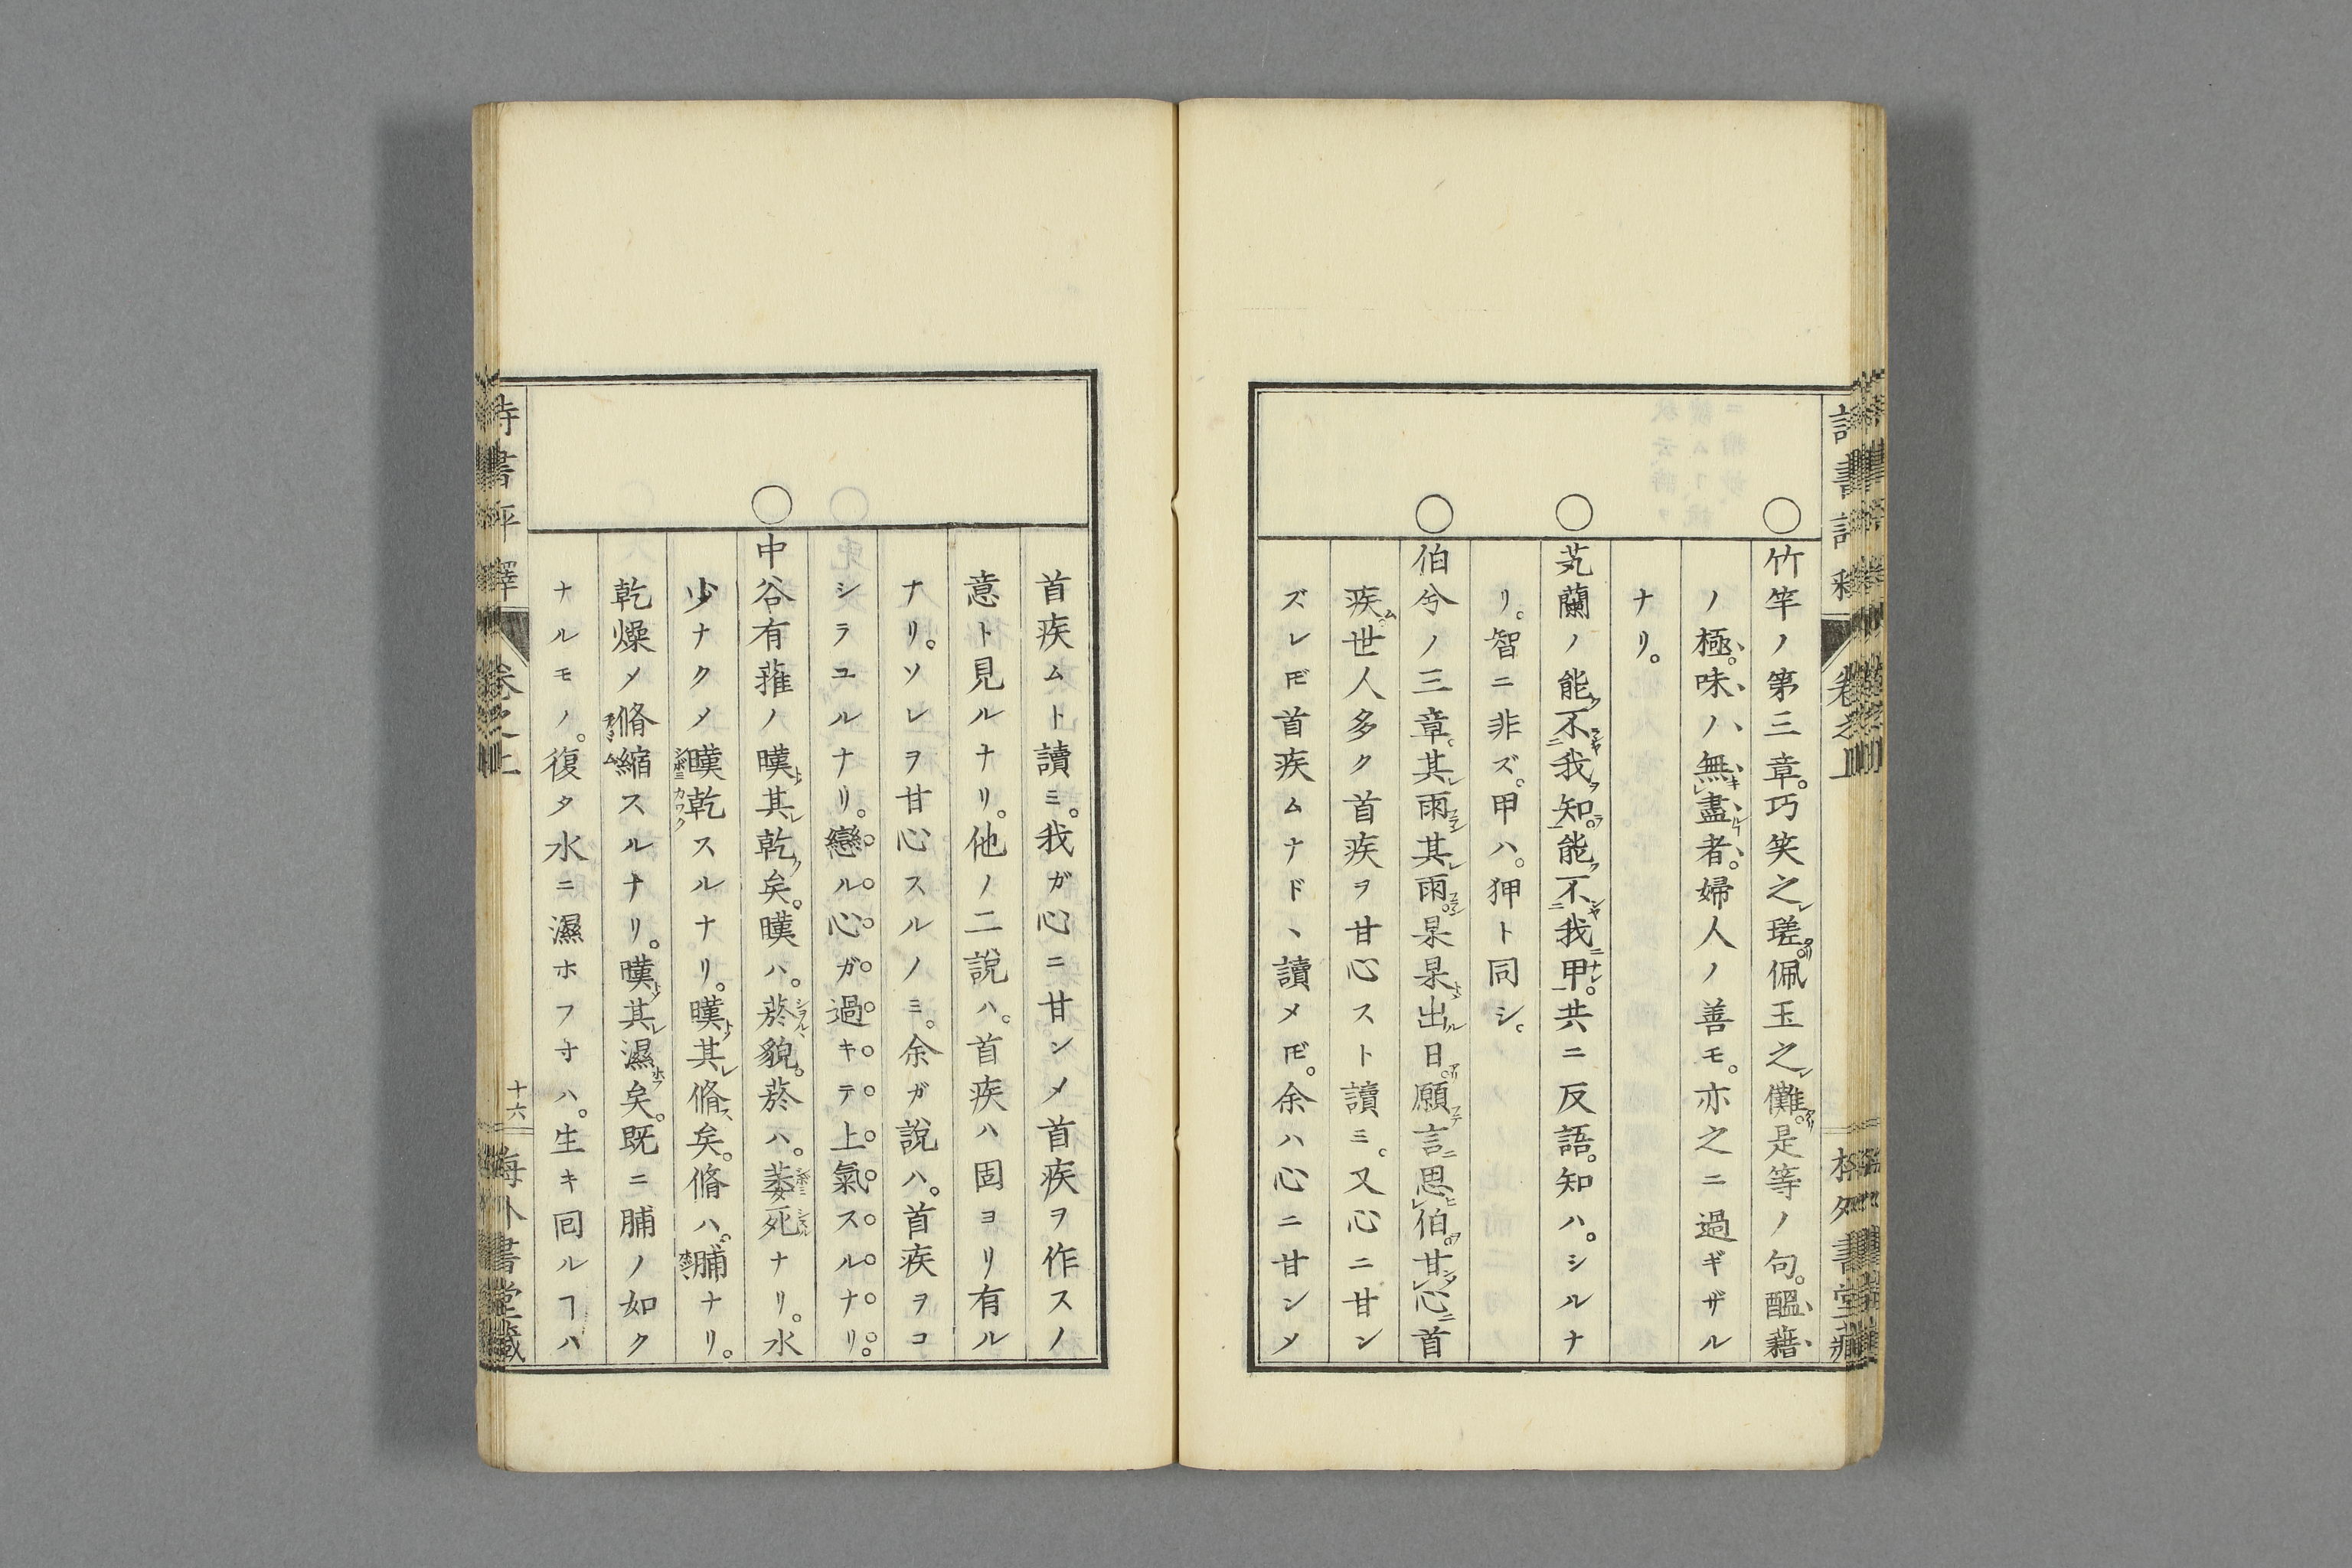 竹竿ノ第三章。巧笑之瑳。佩玉之儺。是等ノ句。醞藉
ノ極。味ハ無盡者。婦人ノ善モ。亦之ニ過ギザル
ナリ。
芄蘭ノ能不我知。能不我甲。共ニ反語。知ハ。シルナ
リ。智ニ非ズ。甲ハ。狎ト同シ。
伯兮ノ三章。其雨其雨。杲杲出日。願言思伯。甘心首
疾。世人多ク首疾ヲ甘心スト讀ミ。又心ニ甘ン
ズレ𪜈首疾ムナド、讀メ𪜈。余ハ心ニ甘ンメ
首疾ムト讀ミ。我ガ心ニ甘ンメ首疾ヲ作スノ
意ト見ルナリ。他ノ二說ハ。首疾ハ固ヨリ有ル
ナリ。ソレヲ甘心スルノミ。余ガ說ハ。首疾ヲコ
シラユルナリ。戀ル心ガ過キテ上氣スルナリ。
中谷有蓷ノ暵其乾矣。暵ハ。菸貌。菸ハ。萎死ナリ。水
少ナクメ暵乾スルナリ。暵其脩矣。脩ハ。脯ナリ。
乾燥メ脩縮スルナリ。暵其濕矣。既ニ脯ノ如ク
ナルモノ。復タ水ニ濕ホフ寸ハ。生キ囘ルヿハ
詩書評釋
卷之上
十六